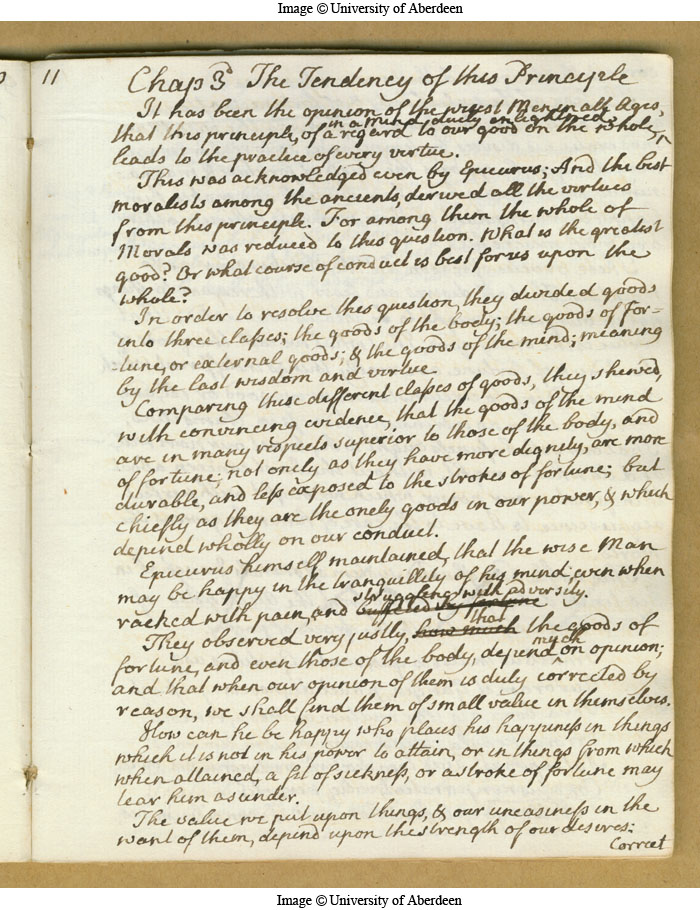 Image © University of Aberdeen
11
Chap 3d The Tendency of this Principle
It has been the opinion of the wisest Men in all Ages,
in a mind duely enlightned,
that this principle, of a regard to our good on the whole,^
leads to the practice of every virtue.
This was acknowledged even by Epicurus; And the best
moralists among the ancients, derived all the virtues
from this principle. For among them the whole of
Morals was reduced to this question. What is the greatest
good? Or what course of conduct is best for us upon the
whole?
In order to resolve this question, they divided goods
into three classes; the goods of the body; the goods of For=
tune, or external goods; & the goods of the mind; meaning
by the last wisdom and virtue
Comparing these different classes of goods, they shewed,
with convincing evidence, that the goods of the mind
are in many respects superior to those of the body, and
of fortune; not onely as they have more dignety, are more
durable, and less exposed to the strokes of fortune; but
chiefly as they are the onely goods in our power, & which
depend wholly on our conduct.
Epicurus himself maintained, that the wise Man
may be happy in the tranquillity of his mind even when
struggleng with adversity.
racked with pain, and buffeted by fortune
that
They observed very justly, how much the goods of
much
fortune, and even those of the body, depend on opinion;
and that when our opinion of them is duly corrected by
reason, we shall find them of small value in themselves.
How can he be happy who places his happiness in things
which it is not in his power to attain, or in things from which
when attained, a fit of sickness, or a stroke of fortune may
tear him asunder.
The value we put upon things, & our uneasiness in the
want of them, depend upon the strength of our desires;
Correct
Image © University of Aberdeen